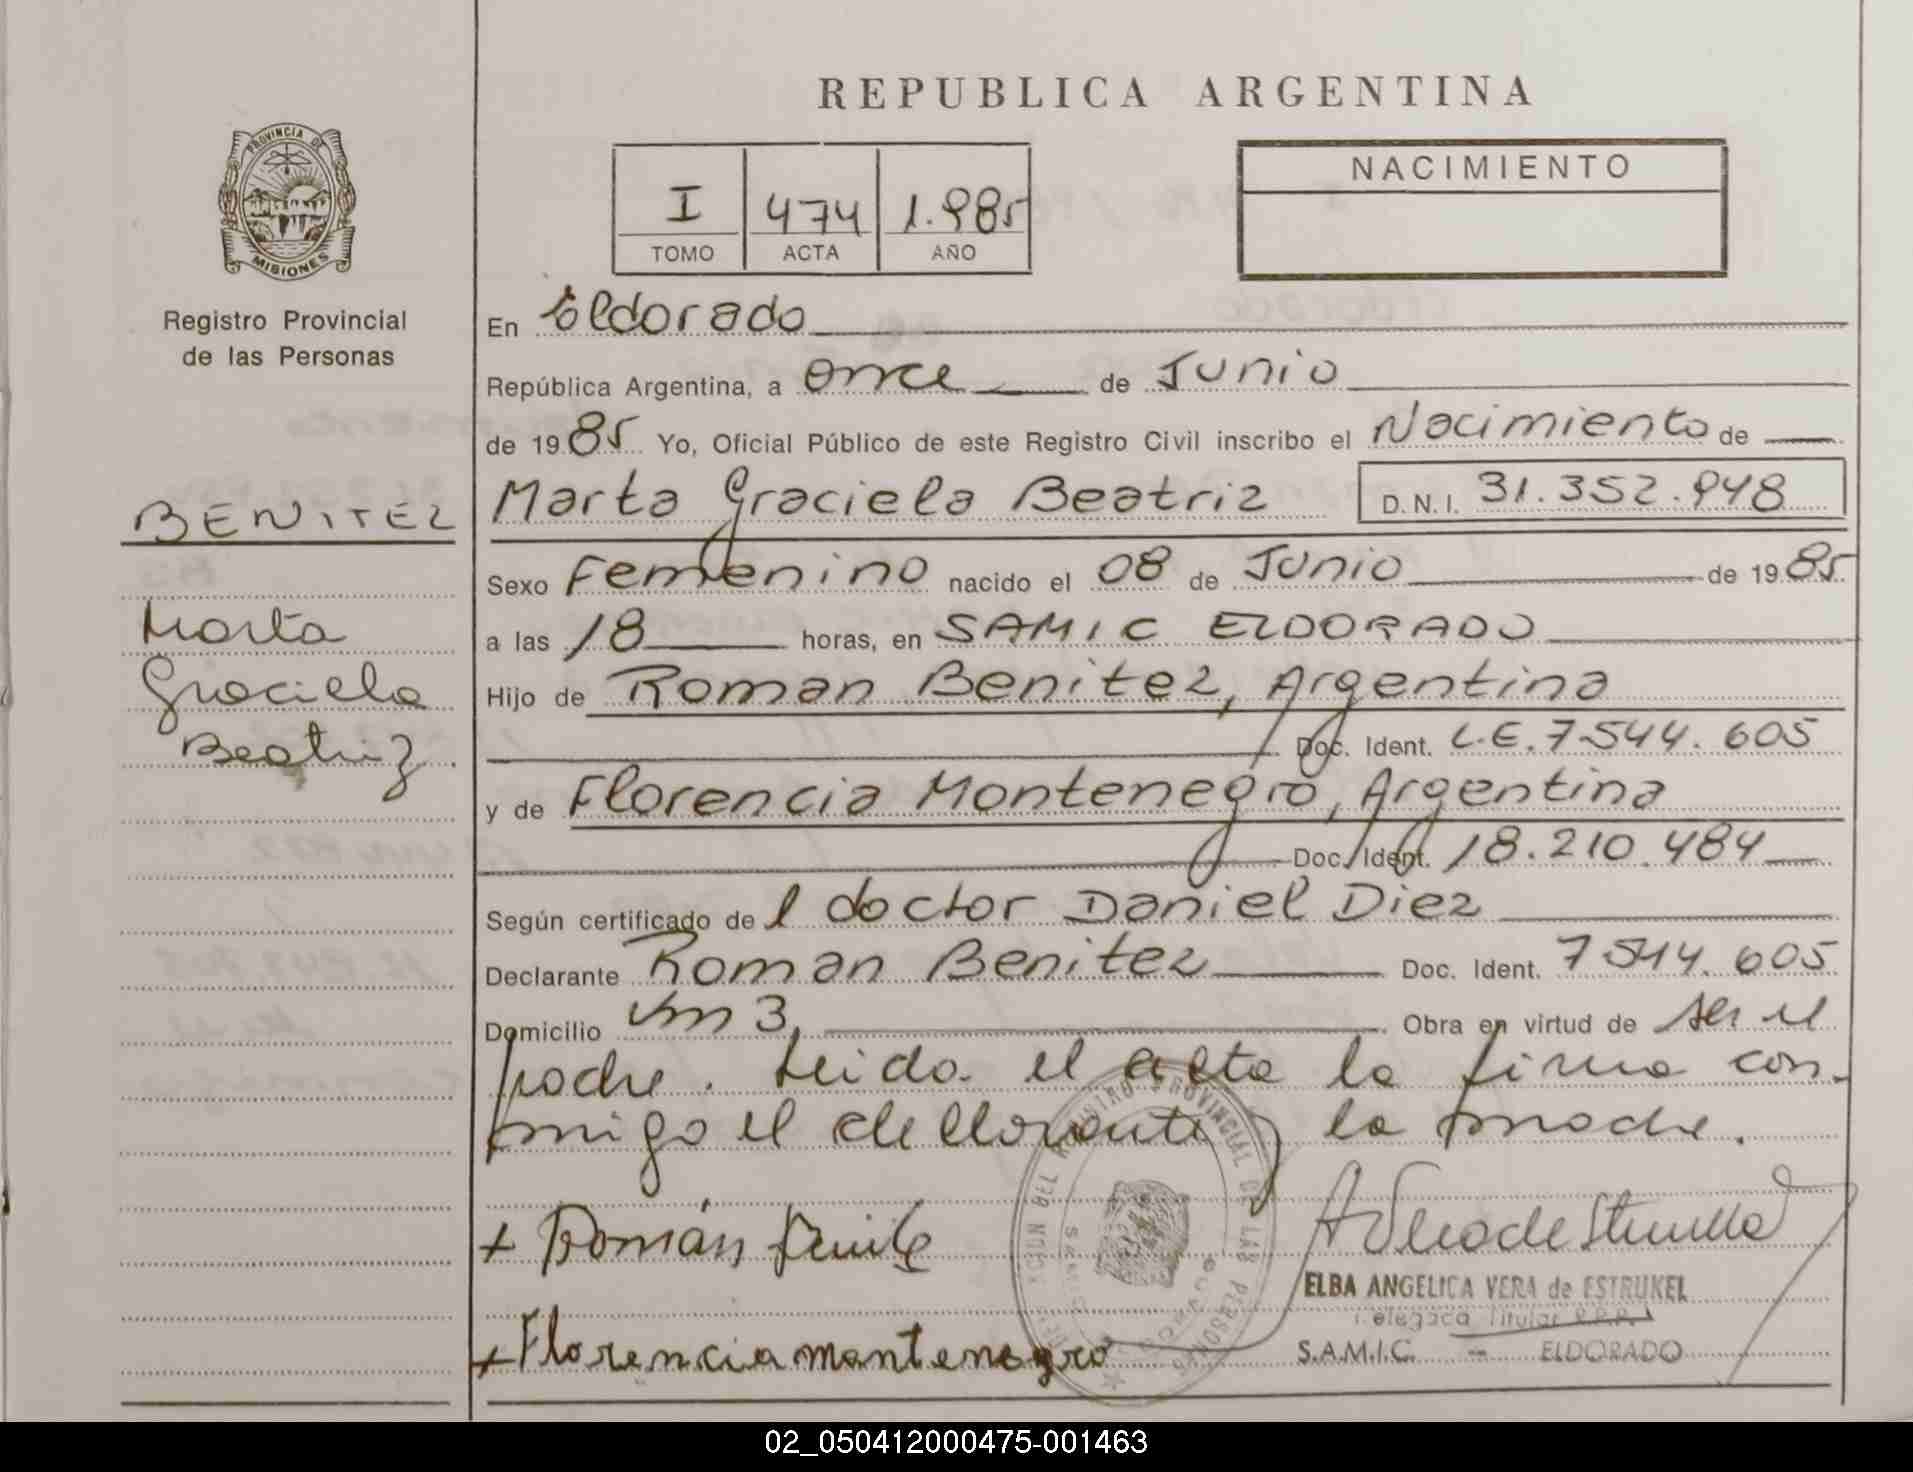 REPUBLICA ARGENTINA
PROVINCIA DE
MISIONES
Registro Provincial
de las Personas
I 474 1.985
TOMO ACTA AÑO
NACIMIENTO
BENITEZ
Marta
Graciela
Beatriz
En Eldorado
República Argentina, a once de Junio
de 1985 Yo, Oficial Público de este Registro Civil inscribo el Nacimiento de
Marta Graciela Beatriz D.N.I. 31.352.948
Sexo Femenino nacido el 08 de Junio de 1985
a las 18 horas, en SAMIC ELDORADO
Hijo de Roman Benitez, Argentina
Doc. Ident. L.E. 7.544.605
y de Florencia Montenegro, Argentina
Doc. Ident. 18.210.484
Según certificado del doctor Daniel Diez
Declarante Roman Benitez Doc. Ident. 7.544.605
Domicilio Km 3, Obra en virtud de ser el
padre. Leida el acta la firma con-
migo el declarante y la madre.
+ Román Benite
+ Florencia montenegro
ELBA ANGELICA VERA de ESTRUKEL
Delegada Titular R.P.P.
S.A.M.I.C. - ELDORADO
02_050412000475-001463